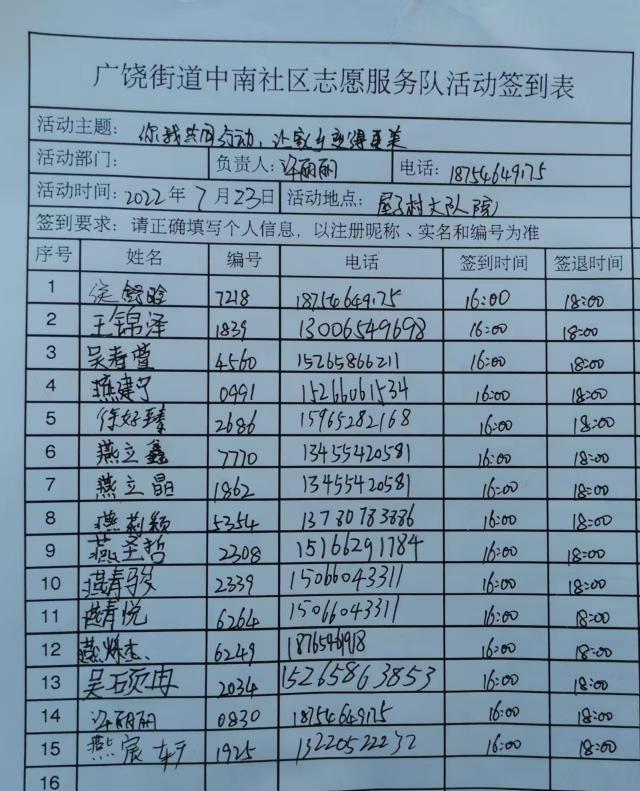 广饶街道中南社区志愿服务队活动签到表
活动主题: 你我共同行动，让家乡变得更美
活动部门: 负责人: 许丽丽 电话: 18754649175
活动时间: 2022年7月23日 活动地点: 村大队院
签到要求: 请正确填写个人信息，以注册昵称、实名和编号为准
序号 姓名 编号 电话 签到时间 签退时间
1 7218 18754649175 16:00 18:00
2 王锦泽 1839 13006549698 16:00 18:00
3 吴春萱 4560 15265866211 16:00 18:00
4 燕建宁 0991 15266061534 16:00 18:00
5 徐好臻 2686 15965282168 16:00 18:00
6 燕立鑫 7770 13455420581 16:00 18:00
7 燕立晶 1862 13455420581 16:00 18:00
8 燕莉颖 5354 13780783886 16:00 18:00
9 燕圣哲 2308 15166291784 16:00 18:00
10 2339 15066043311 16:00 18:00
11 6264 15066043311 16:00 18:00
12 燕烁杰 6249 16:00 18:00
13 吴硕冉 2034 15265863853 16:00 18:00
14 许丽丽 0830 18754649175 16:00 18:00
15 燕宸轩 1925 13220522232 16:00 18:00
16